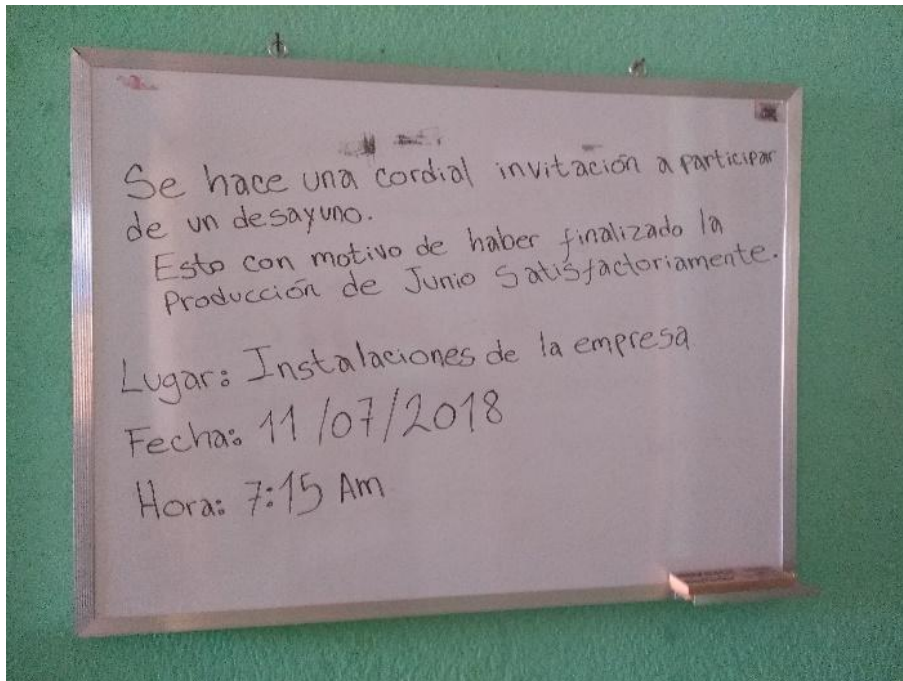 Se hace una cordial invitación a participar
de un desayuno.
Esto con motivo de haber finalizado la
Producción de Junio Satisfactoriamente.
Lugar: Instalaciones de la empresa
Fecha: 11/07/2018
Hora: 7:15 Am